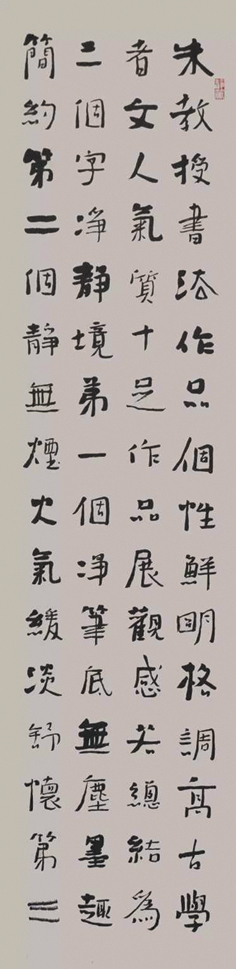 朱教授書法作品個性鮮明格調高古學
者文人氣質十足作品展觀感若總結為
三個字净靜境第一個净筆底無塵墨趣
簡約第二個靜無煙火氣緩淡舒懷第三